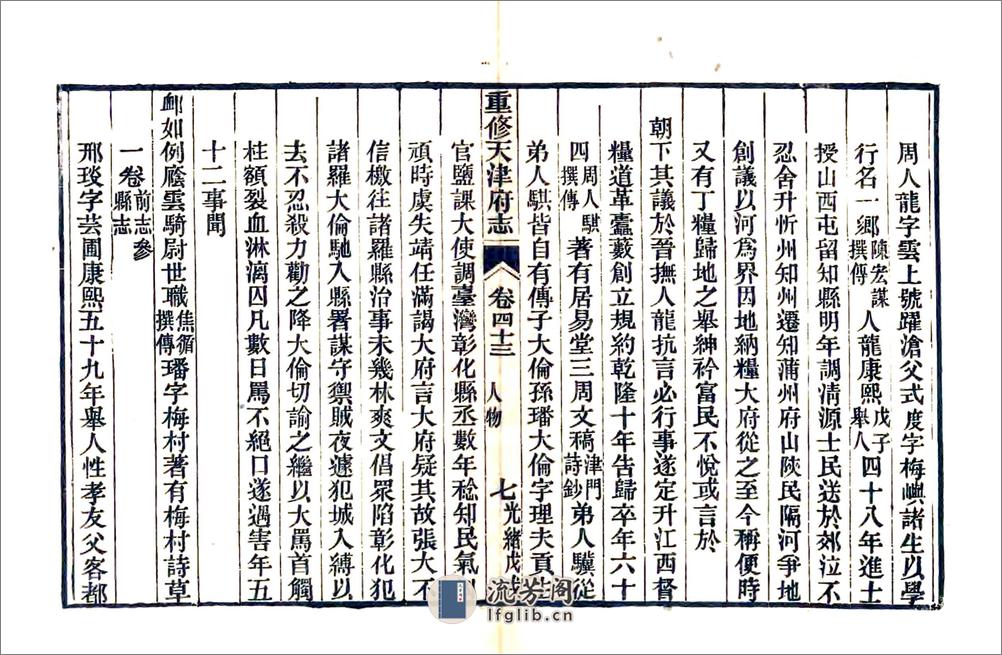 周人龍字雲上號躍滄父式度字梅嶼諸生以學
行名一鄉陳宏謀撰傳人龍康熙戊子舉人四十八年進士
授山西屯留知縣明年調清源士民送於郊泣不
忍舍升忻州知州遷知蒲州府山陝民隔河爭地
創議以河為界因地納糧大府從之至今稱便時
又有丁糧歸地之舉紳衿富民不悅或言於
朝下其議於晉撫人龍抗言必行事遂定升江西督
糧道革蠹藪創立規約乾隆十年告歸卒年六十
四周人騏撰傳著有居易堂三周文稿津門詩鈔弟人驥從
弟人騏皆自有傳子大倫孫璠大倫字理夫貢生
重修天津府志
卷四十三
人物
七
光緒戊戌
官鹽課大使調臺灣彰化縣丞數年稔知民氣
頑時虞失靖任滿謁大府言大府疑其故張大不
信檄往諸羅縣治事未幾林爽文倡眾陷彰化犯
諸羅大倫馳入縣署謀守禦賊夜遽犯城入縛以
去不忍殺力勸之降大倫切諭之繼以大罵首觸
柱額裂血淋漓囚凡數日罵不絕口遂遇害年五
十二事聞
卹如例廕雲騎尉世職焦循撰傳璠字梅村著有梅村詩草
一卷前志參縣志
邢琰字芸圃康熙五十九年舉人性孝友父客都
流芳阁
lfglib.cn